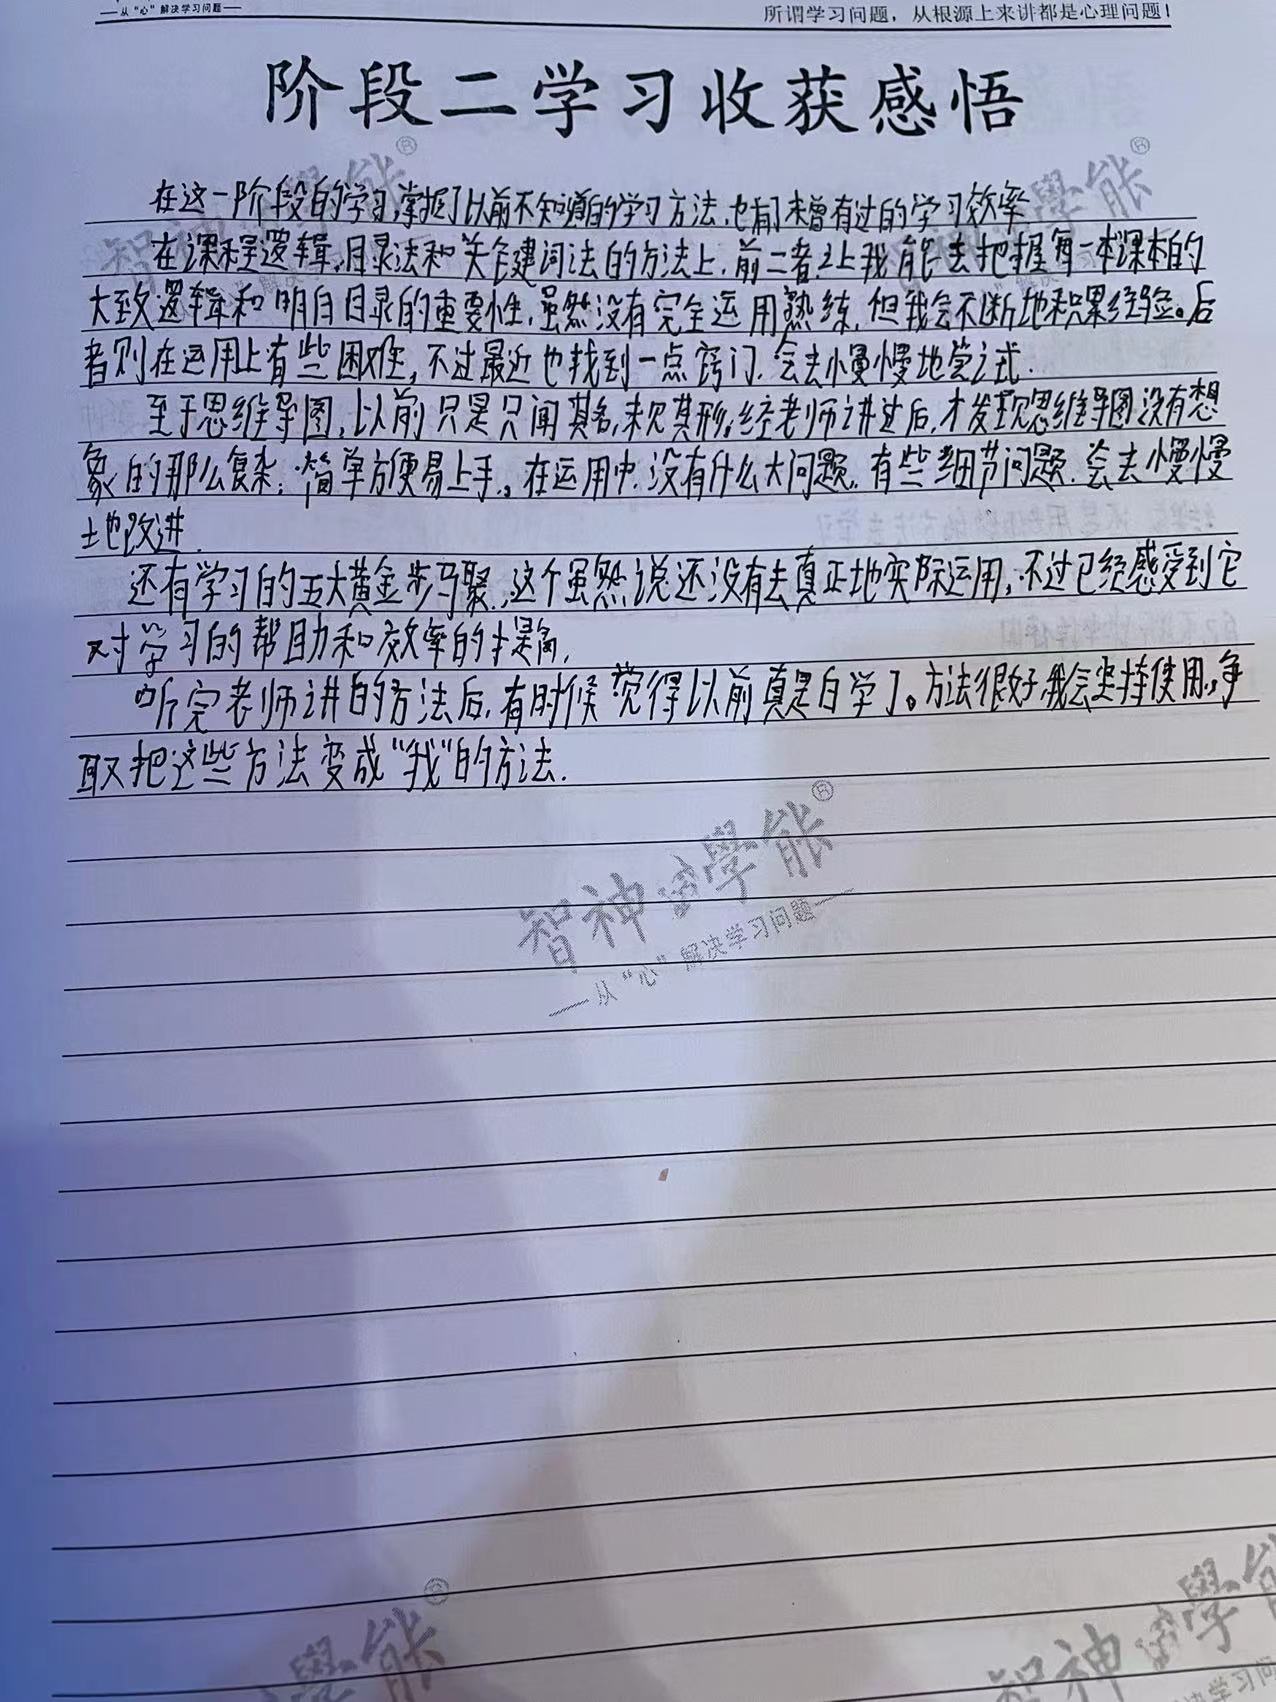 从“心”解决学习问题
所谓学习问题，从根源上来讲都是心理问题！
阶段二学习收获感悟
在这一阶段的学习,掌握了以前不知道的学习方法,也有了未曾有过的学习效率
在课程逻辑,目录法和关键词法的方法上,前二者之上我能去把握每一本课本的
大致逻辑和明白目录的重要性,虽然没有完全运用熟练,但我会不断地积累经验。后
者则在运用上有些困难,不过最近也找到一点窍门,会去慢慢地尝试.
至于思维导图,以前只是只闻其名,未见其形,经老师讲过后,才发现思维导图没有想
象的那么复杂;简单方便易上手。在运用中,没有什么大问题,有些细节问题,会去慢慢
地改进.
还有学习的五大黄金步骤,这个虽然说还没有去真正地实际运用,不过已经感受到它
对学习的帮助和效率的提高,
听完老师讲的方法后,有时候觉得以前真是白学了。方法很好,我会坚持使用,争
取把这些方法变成“我”的方法.
智神 學能®
从“心”解决学习问题
學能®
智神 學能